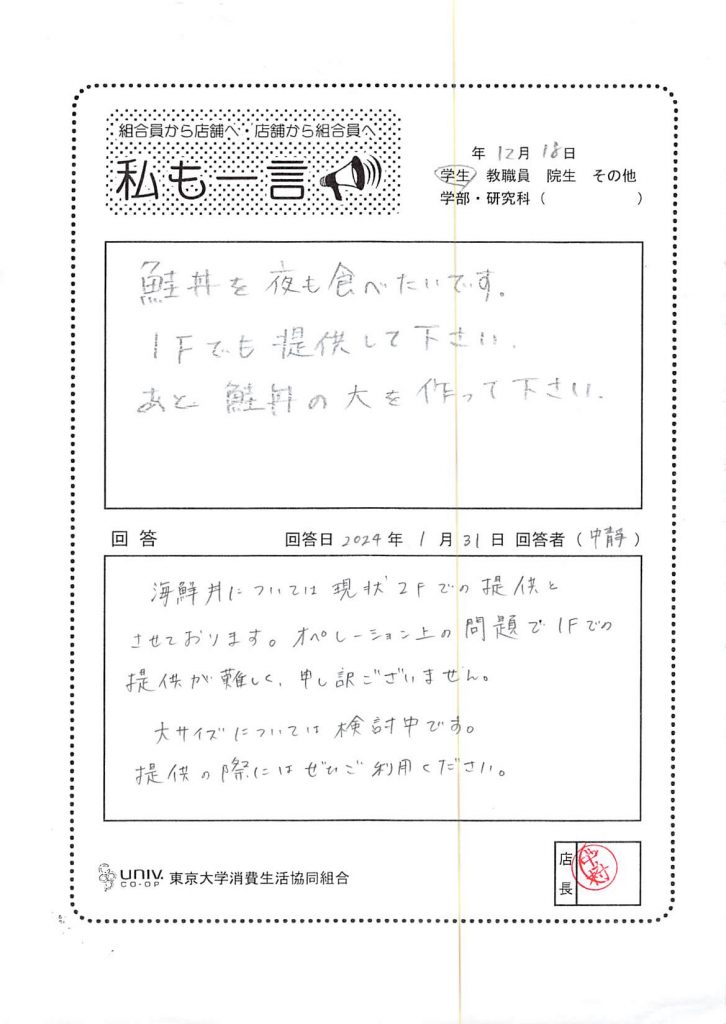 組合員から店舗へ・店舗から組合員へ
私も一言
年 12月 18日
学生 教職員 院生 その他
学部・研究科 ( )
鮭丼を夜も食べたいです。
1Fでも提供して下さい.
あと 鮭丼の大を作って下さい.
回答 回答日 2024年 1月 31日 回答者 (中静)
海鮮丼については現状2Fでの提供と
させております。オペレーション上の問題で1Fでの
提供が難しく、申し訳ございません。
大サイズについては検討中です。
提供の際にはぜひご利用ください。
UNIV. CO-OP 東京大学消費生活協同組合
店長 中村